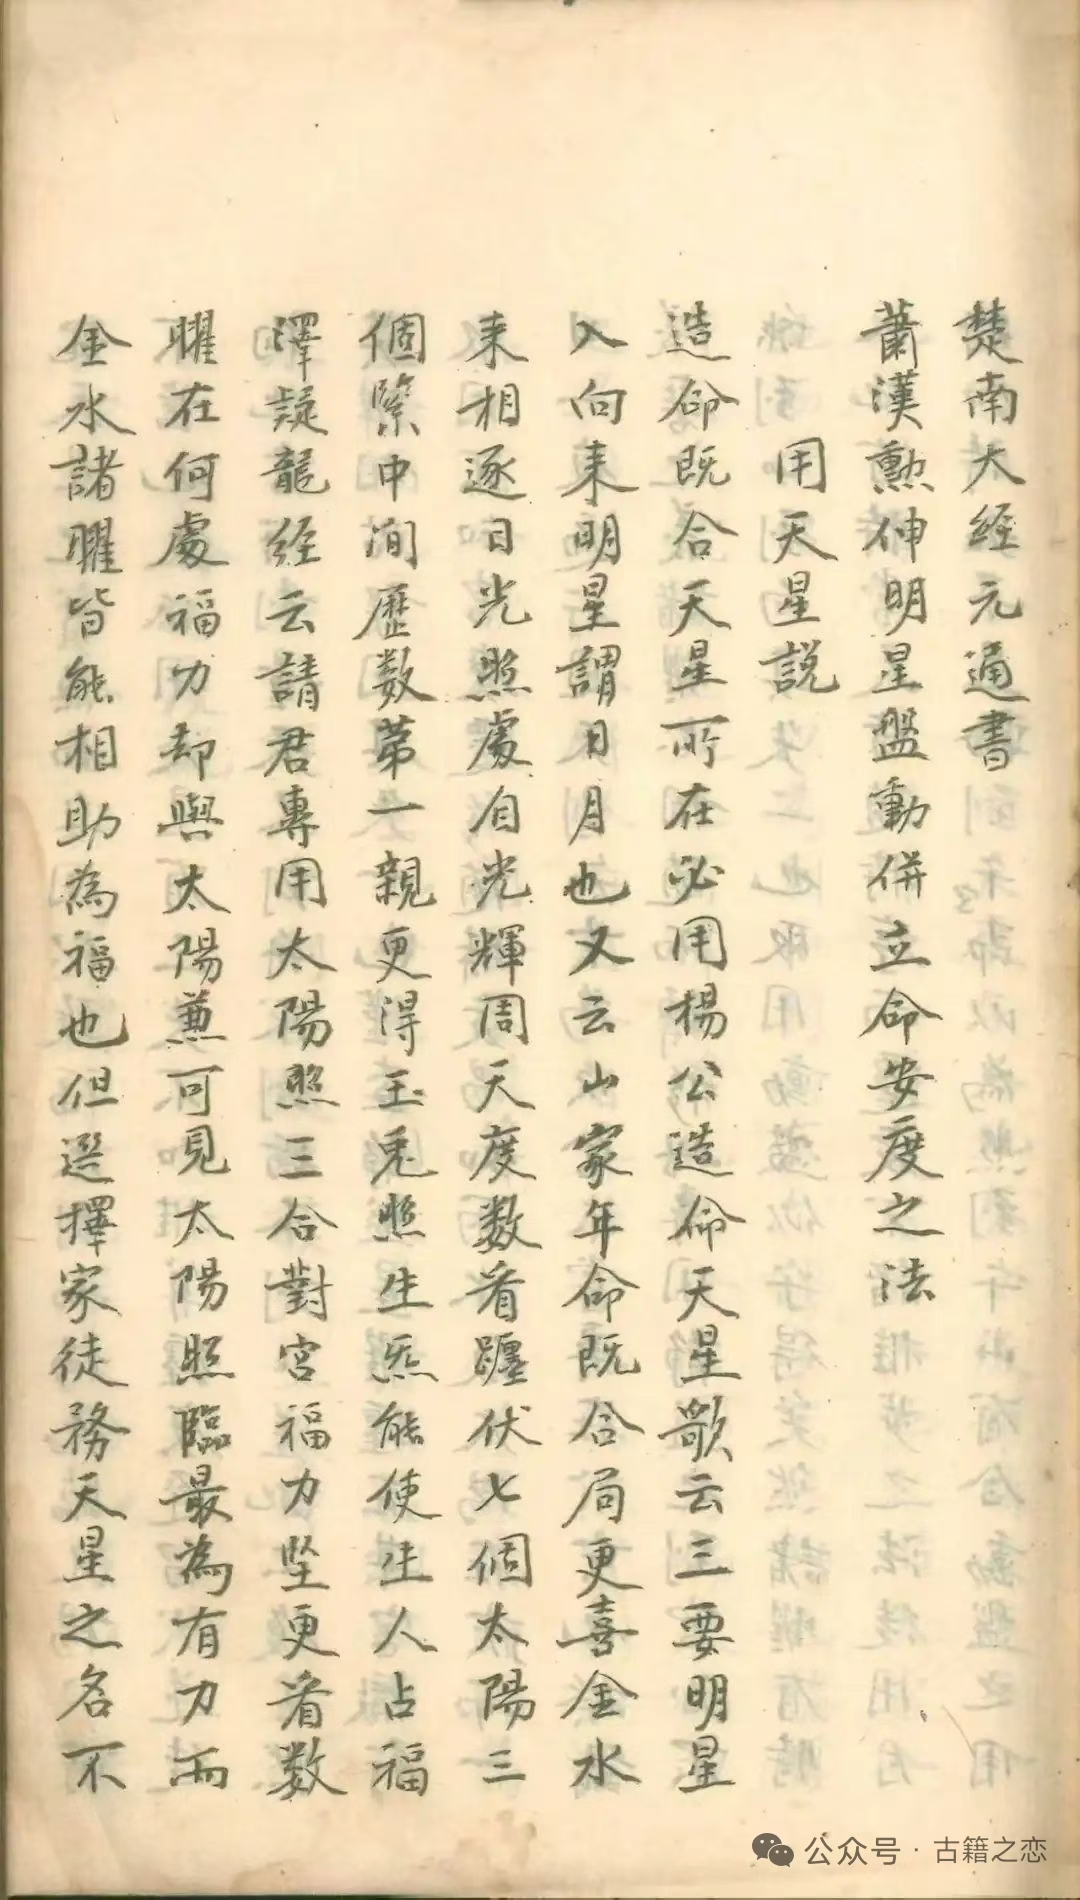 楚南大経元通書
蕭漢勲伸明星盤動併立命安度之法
用天星説
造命既合天星所在必用楊公造命天星歌云三要明星
入向来明星謂日月也又云山家年命既合局更喜金水
来相逐日光照處自光輝周天度数看躔伏七個太陽三
個緊中间歷数第一親更得玉兎照生炁能使生人占福
澤疑龍経云請君專用太陽照三合對宮福力坚更看数
曜在何處福力却與太陽蒹可見太陽照臨最為有力而
金水諸曜皆能相助為福也但选擇家徒務天星之名不
公众号·古籍之恋